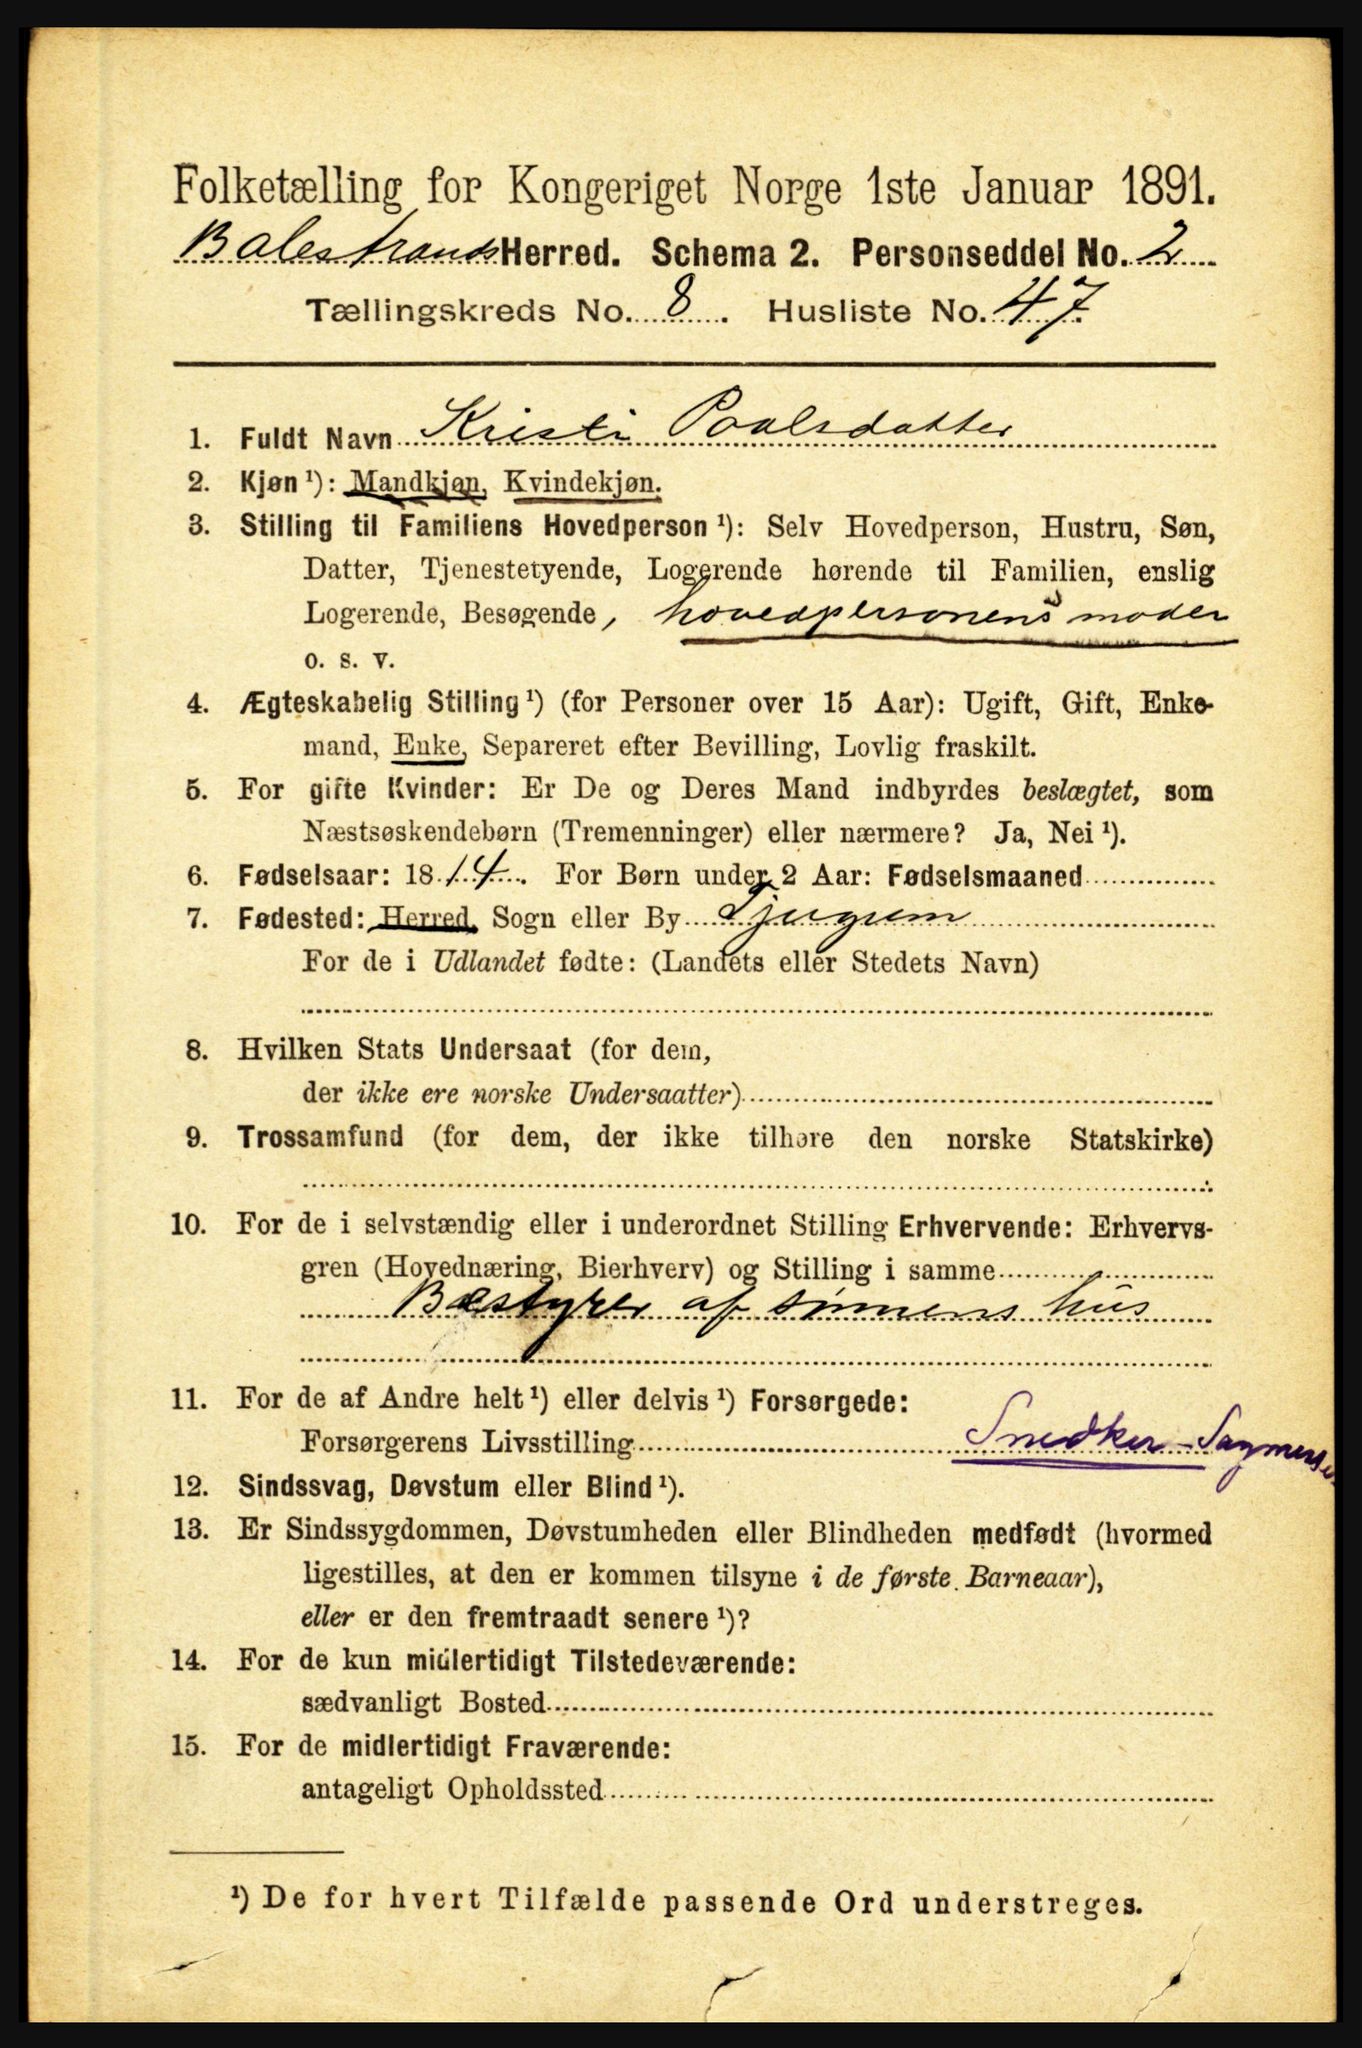 Folketælling for Kongeriget Norge 1ste Januar 1891.
Balestrands Herred. Schema 2. Personseddel No. 2
Tællingskreds No. 8. Husliste No. 47
1. Fuldt Navn Kristi Paalsdatter
2. Kjøn ¹): Mandkjøn, Kvindekjøn.
3. Stilling til Familiens Hovedperson ¹): Selv Hovedperson, Hustru, Søn,
Datter, Tjenestetyende, Logerende hørende til Familien, enslig
Logerende, Besøgende, hovedpersonens moder
o. s. v.
4. Ægteskabelig Stilling ¹) (for Personer over 15 Aar): Ugift, Gift, Enke-
mand, Enke, Separeret efter Bevilling, Lovlig fraskilt.
5. For gifte Kvinder: Er De og Deres Mand indbyrdes beslægtet, som
Næstsøskendebørn (Tremenninger) eller nærmere? Ja, Nei ¹).
6. Fødselsaar: 1814. For Børn under 2 Aar: Fødselsmaaned
7. Fødested: Herred, Sogn eller By Tjugum
For de i Udlandet fødte: (Landets eller Stedets Navn)
8. Hvilken Stats Undersaat (for dem,
der ikke ere norske Undersaatter)
9. Trossamfund (for dem, der ikke tilhøre den norske Statskirke)
10. For de i selvstændig eller i underordnet Stilling Erhvervende: Erhvervs-
gren (Hovednæring, Bierhverv) og Stilling i samme
Bestyrer af sønnens hus
11. For de af Andre helt ¹) eller delvis ¹) Forsørgede:
Forsørgerens Livsstilling Snedker -
12. Sindssvag, Døvstum eller Blind ¹).
13. Er Sindssygdommen, Døvstumheden eller Blindheden medfødt (hvormed
ligestilles, at den er kommen tilsyne i de første Barneaar),
eller er den fremtraadt senere ¹)?
14. For de kun midlertidigt Tilstedeværende:
sædvanligt Bosted
15. For de midlertidigt Fraværende:
antageligt Opholdssted
¹) De for hvert Tilfælde passende Ord understreges.